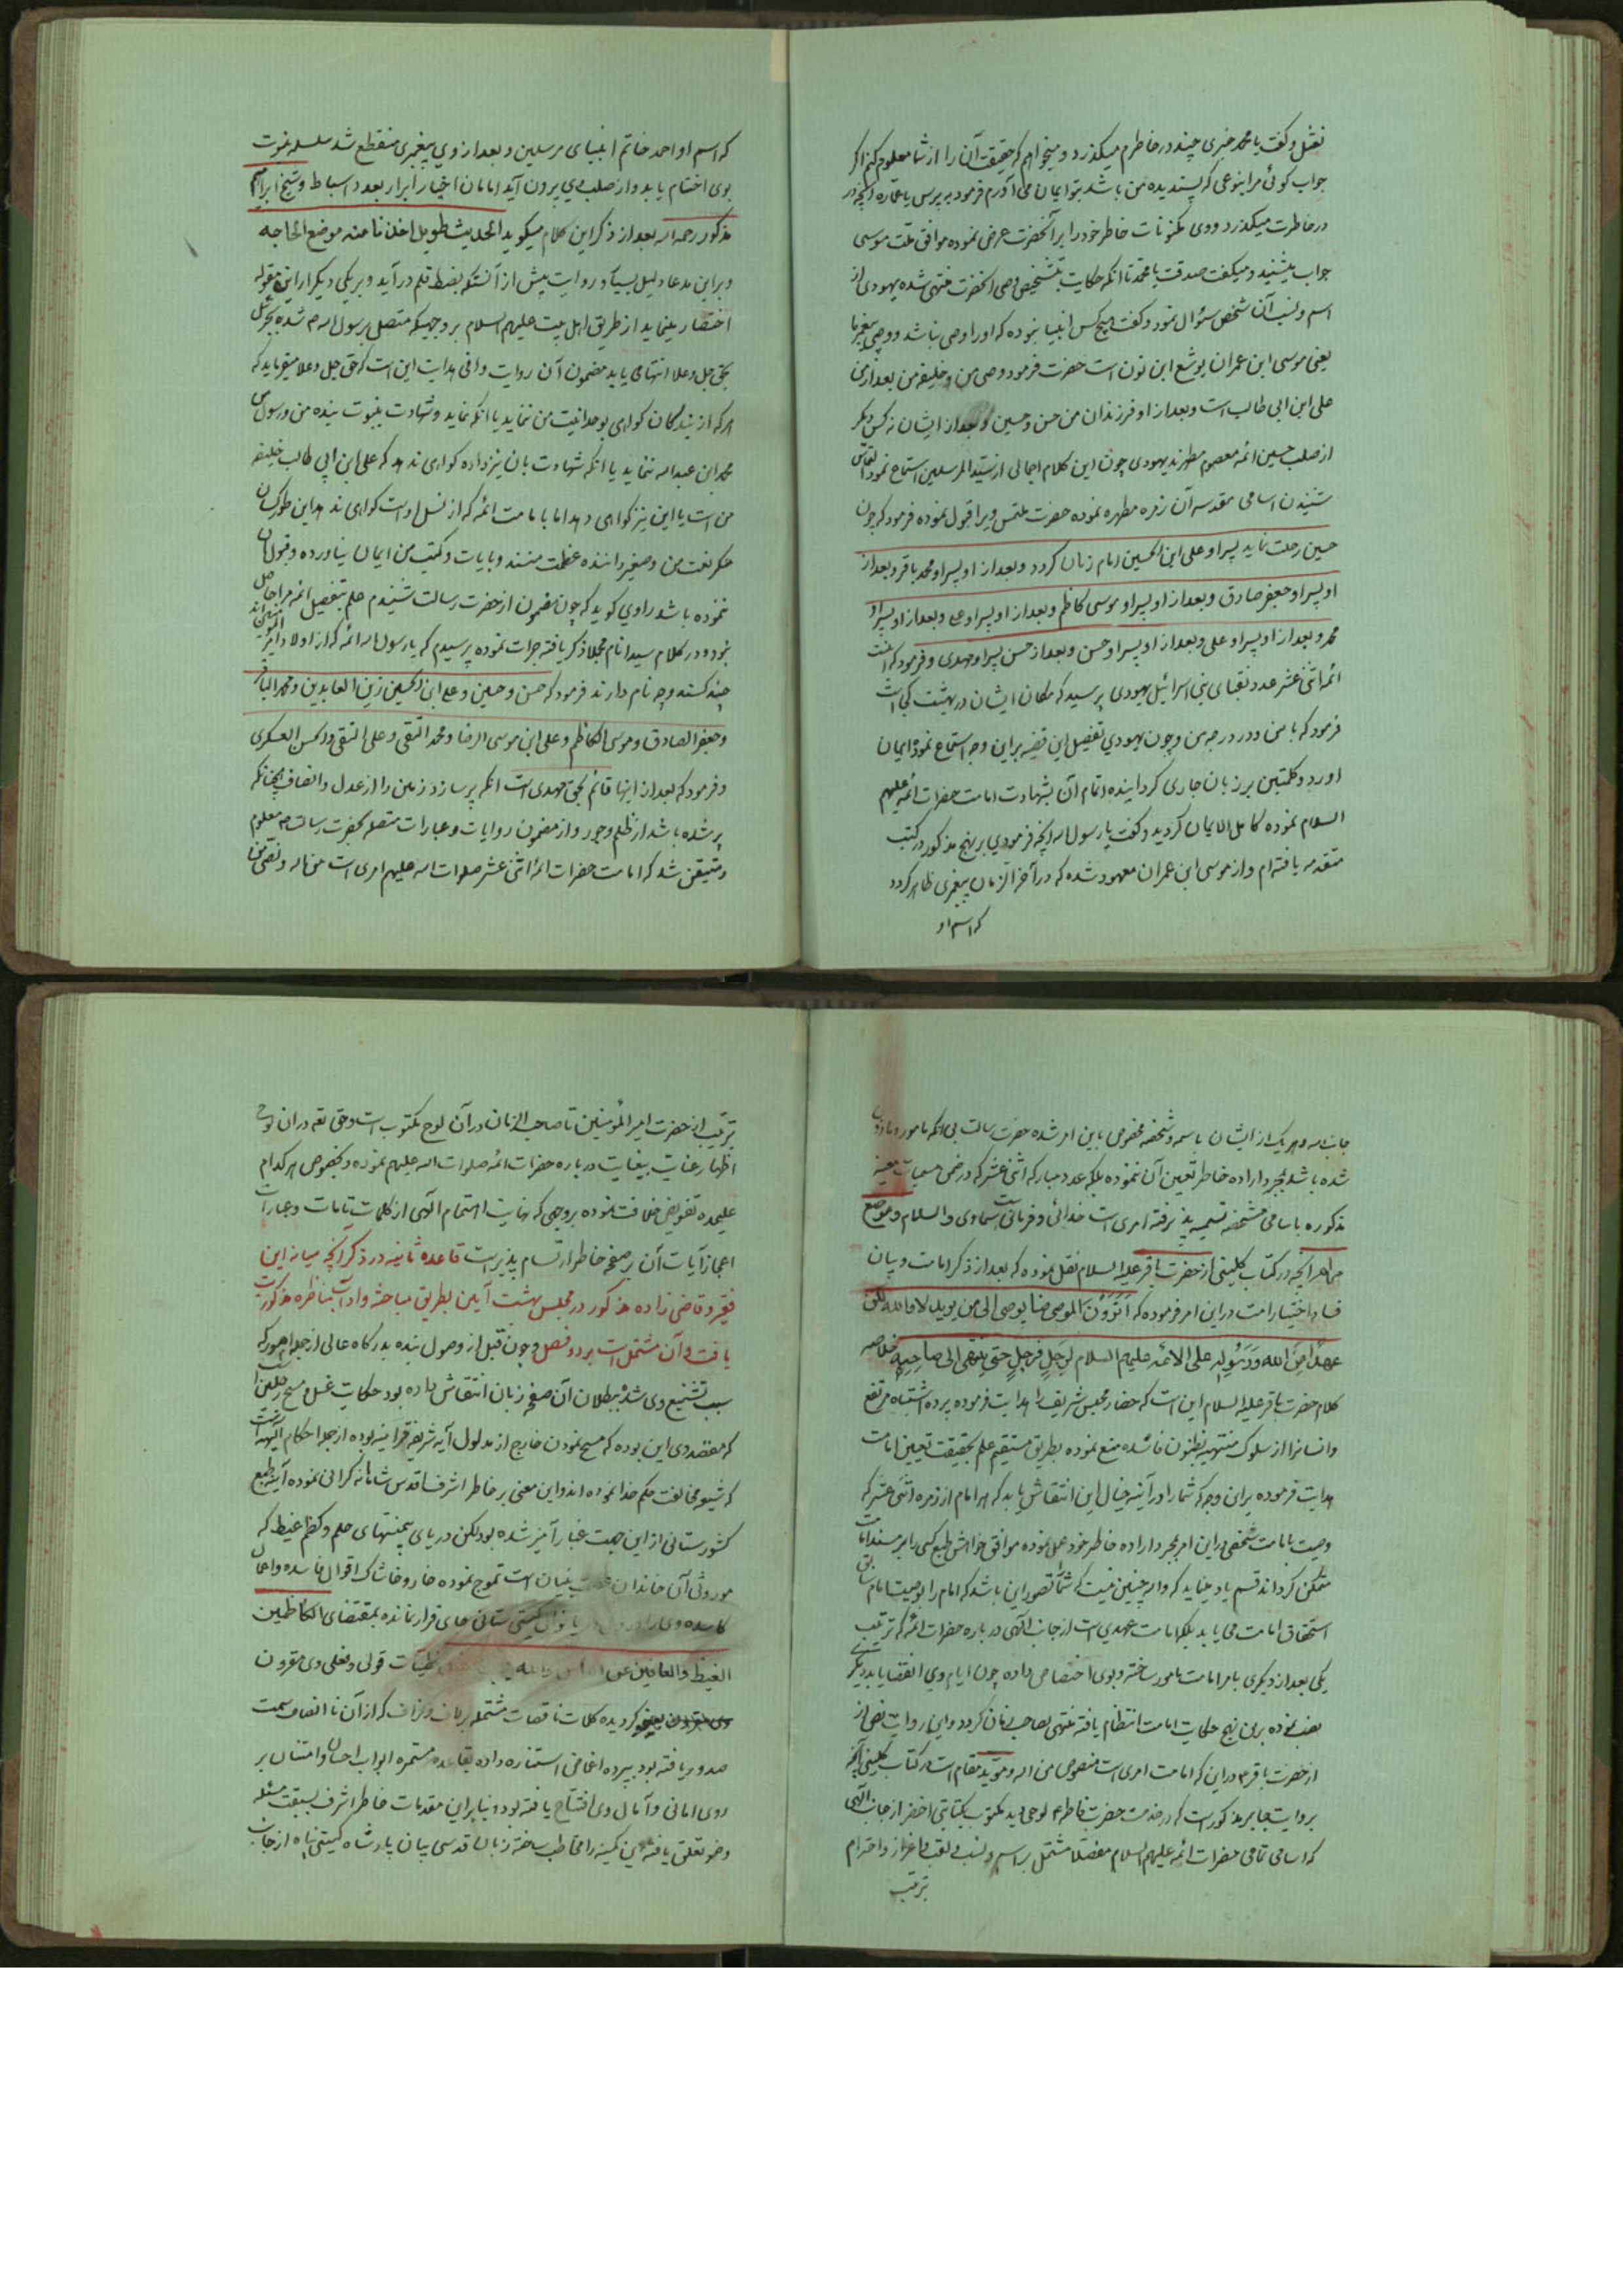 نعثل و گفت یا محمد خبری چند در خاطرم میگذرد و میخواهم که حقیقت آن را از شما معلوم کنم اگر
جواب گوئی مرا بنوعی که پسندیده من باشد بتو ایمان می آورم فرمود بپرس یا عماره آنچه در
در خاطرت میگذرد ووی مکنونات خاطر خود را بر آنحضرت عرض نموده موافق ملت موسی
جواب میشنید و میگفت صدقت یا محمد تا آنکه حکایت بتشخیص وصی آنحضرت منتهی شده یهودی از
اسم و نسب آن شخص سئوال نمود و گفت هیچ کس انبیا نبوده که او را وصی نباشد و وصی پیغمبر ما
یعنی موسی ابن عمران یوشع ابن نون است حضرت فرمود وصی من و خلیفه من بعد از من
علی ابن ابی طالب است و بعد از او فرزندان من حسن و حسین و بعد از ایشان نه کس دیگر
از صلب حسین ائمه معصوم مطهرند یهودی چون این کلام اجمالی از سید المرسلین استماع نمود التماس
شنیدن اسامی مقدسه آن زمره مطهره نموده حضرت ملتمس ویرا قبول نموده فرمود که چون
حسین رحلت نماید پسر او علی ابن الحسین امام زمان گردد و بعد از او پسر او محمد باقر و بعد از
او پسر او جعفر صادق و بعد از او پسر او موسی کاظم و بعد از او پسر او علی و بعد از او پسر او
محمد و بعد از او پسر او علی و بعد از او پسر او حسن و بعد از حسن پسر او مهدی و فرمود که اینست
ائمه اثنی عشر عدد نقبای بنی اسرائیل یهودی پرسید که مکان ایشان در بهشت کجاست
فرمود که با من در درجه من و چون یهودی تفصیل این قضیه براین وجه استماع نمود ایمان
آورد و کلمتین بر زبان جاری گردانیده اتمام آن بشهادت امامت حضرات ائمه علیهم
السلام نموده کامل الایمان گردید و گفت یا رسول الله آنچه فرمودی بر نهج مذکور در کتب
متقدمه یافته ام و از موسی ابن عمران معهود شده که در آخر الزمان پیغمبری ظاهر گردد
که اسم او
که اسم او احمد خاتم انبیای مرسلین و بعد از وی پیغمبری منقطع شد سلسله نبوت
بوی اختتام یابد و از صلب وی بیرون آید امامان اخیار ابرار بعدد اسباط و شیخ ابراهیم
مذکور رحمه الله بعد از ذکر این کلام میگوید الحدیث طویل اخذنا منه موضع الحاجه
و براین مدعا دلیل بسیار و روایت بیش از آنستکه بضبط قلم در آید و بر یکی دیگر از این مقوله
اختصار مینماید از طریق اهل بیت علیهم السلام بر وجهیکه متصل برسول الله ص شده بجبرئیل
بحق جل و علا انتهای یابد مضمون آن روایت وافی هدایت این است که حق جل و علا میفرماید که
هر که از بندگان گواهی بوحدانیت من ننماید یا آنکه نماید و شهادت بنبوت بنده من و رسول من
محمد ابن عبدالله ننماید یا آنکه شهادت بان نیز داده گواهی ندهد که علی ابن ابی طالب خلیفه
من است یا این نیز گواهی دهد اما بامامت ائمه که از نسل او است گواهی ندهد این طور کسان
منکر نعت من و صغیر داننده عظمت منند و بایات و کتب من ایمان نیاورده و قبول آن
ننموده باشد راوی گوید که چون مضمون از حضرت رسالت شنیدم علم بتفصیل ائمه مرا حاصل
نبود و در کلام سید انام مجملا ذکر یافته جرات نموده پرسیدم که یا رسول الله ائمه که از اولاد امیر
چند کسند و چه نام دارند فرمود که حسن و حسین و علی ابن الحسین زین العابدین و محمد الباقر
و جعفر الصادق و موسی الکاظم و علی ابن موسی الرضا و محمد التقی و علی النقی والحسن العسکری
و فرمود که بعد از اینها قائم بحق مهدی است آنکه پر سازد زمین را از عدل و انصاف چنانکه
پر شده باشد از ظلم و جور و از مضمون روایات و عبارات متصله بحضرت رسالت ص معلوم
و متیقن شد که امامت حضرات ائمه اثنی عشر صلوات الله علیهم امری است من الله و نصی من
جانب الله و هر یک از ایشان باسمه و شخصه مخصوص باین امر شده حضرت رسالت بی آنکه مامور و ماذون
شده باشد بمجرد اراده خاطر تعیین آن ننموده بلکه عدد مبارکه اثنی عشر که در ضمن مسمیات معینه
مذکوره باسامی مشخصه تسمیه پذیرفته امری است خدائی و فرمانی است سماوی والسلام و موضح
مراهر آنچه در کتاب کلینی از حضرت باقر علیه السلام نقل نموده که بعد از ذکر امامت و بیان
فساد اختیار امت در این امر فرموده که اترون الموصی منا یوصی الی من یرید لا والله لکن
عهد من الله و رسوله علی الائمه علیهم السلام لرجل فرجل حتی ینتهی الی صاحبه خلاصه
کلام حضرت باقر علیه السلام این است که حضار مجلس شریف را هدایت فرموده پرده اشتباه مرتفع
و انسانرا از سلوک منتهیه بظنون فاسده منع نموده بطریق مستقیم علم بحقیقت تعیین امامت
هدایت فرموده براین وجه که شما را در آینه خیال این انتقاش یابد که هر امام از زمره اثنی عشر که
وصیت بامامت شخصی در این امر بمجرد اراده خاطر خود عمل نموده موافق خواهش طبع کسی را بر مسند امامت
متمکن گرداند قسم یاد مینماید که والله چنین نیست که شما تصور این باشد که امام را بوصیت امام سابق
استحقاق امامت می یابد بلکه امامت عهدی است از جانب الهی در باره حضرات ائمه که ترتیب
یکی بعد از دیگری بامر امامت مامور ساخته و بوی اختصاص داده چون ایام وی انقضا یابد دیگری
نصب نموده براین نهج حکایت امامت انتظام یافته منتهی بصاحب زمان گردد و این روایت نص از
از حضرت باقر ع در این که امامت امری است منصوص من الله و موید مقام است در کتاب کلینی آنچه
بروایت جابر مذکور است که در خدمت حضرت فاطمه ع لوحی دید مکتوب بکتابتی اخضر از جانب الهی
که اسامی تمامی حضرات ائمه علیهم السلام مفصلا مشتمل بر اسم و نسب و لقب با اعزاز و احترام
ترتیب
ترتیب از حضرت امیر المؤمنین تا صاحب الزمان در آن لوح مکتوب است و حق تعه در ان لوح
اظهار عنایت بیغایت درباره حضرات ائمه صلوات الله علیهم نموده و بخصوص هر کدام
علیحده تفویض خلافت نموده بروجهی که نهایت اهتمام الهی از کلمات تامات و عبارات
اعجاز آیات آن بر صفحه خاطر ارتسام پذیر است قاعده ثانیه در ذکر آنچه میانه این
فقیر و قاضی زاده مذکور در مجلس بهشت آیین بطریق مباحثه و اداب مناظره مذکور
یافت و آن مشتمل است بر دو فصل و چون قبل از وصول بنده بدرگاه عالی از جمله امور که
سبب تشنیع وی شده ببطلان آن صفحه زبان انتقاش داده بود حکایت غسل و مسح رجلین است
که معتقد وی این بوده که مسح نمودن خارج از مدلول آیه شریفه قرانیه بوده از جمله احکام الهیه است
که شیعه مخالفت حکم خدا نموده اند و این معنی بر خاطر اشرف اقدس شاهانه گرانی نموده آینه طبع
کشورستانی از این جهت غبار آمیز شده بود لیکن دریای بیمنتهای حلم و کظم غیظ که
موروثی آن خاندان است تموج نموده خار و خاشاک اقوال فاسده و اعمال
کاسده وی را گیتی ستانی جای قرار نمانده بمقتضای الکاظمین
الغیظ والعافین عن الناس والله قولی و فعلی وی مقرون
گردیده کلمات ناقصات مشتمله بر لاف و گزاف که از آن نا انصاف سمت
صدور یافته بود بپرده اغماض استتاره داده بقاعده مستمره ابواب احسان و امتنان بر
روی امانی و آمال وی افتتاح یافته بود و بنابراین مقدمات خاطر اشرف بسبقت مسئله
وضو تعلق یافته این کمینه را مخاطب ساخته زبان قدسی بیان پادشاه گیتی پناه از جانب